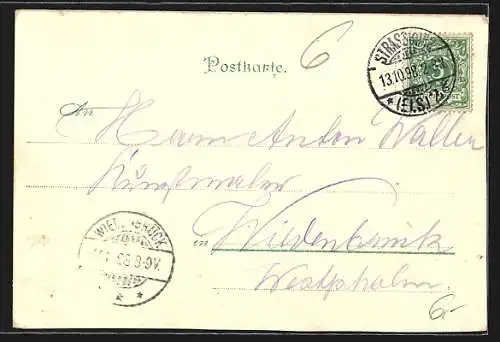 6
Postkarte.
STRASSBURG
13.10.98.
* (ELS.) 2
5
An
Herrn Anton Walter
Kunstmaler
in Wiedenbrück
Westphalen.
WIEDENBRÜCK
98 8-9V.
* *
6-